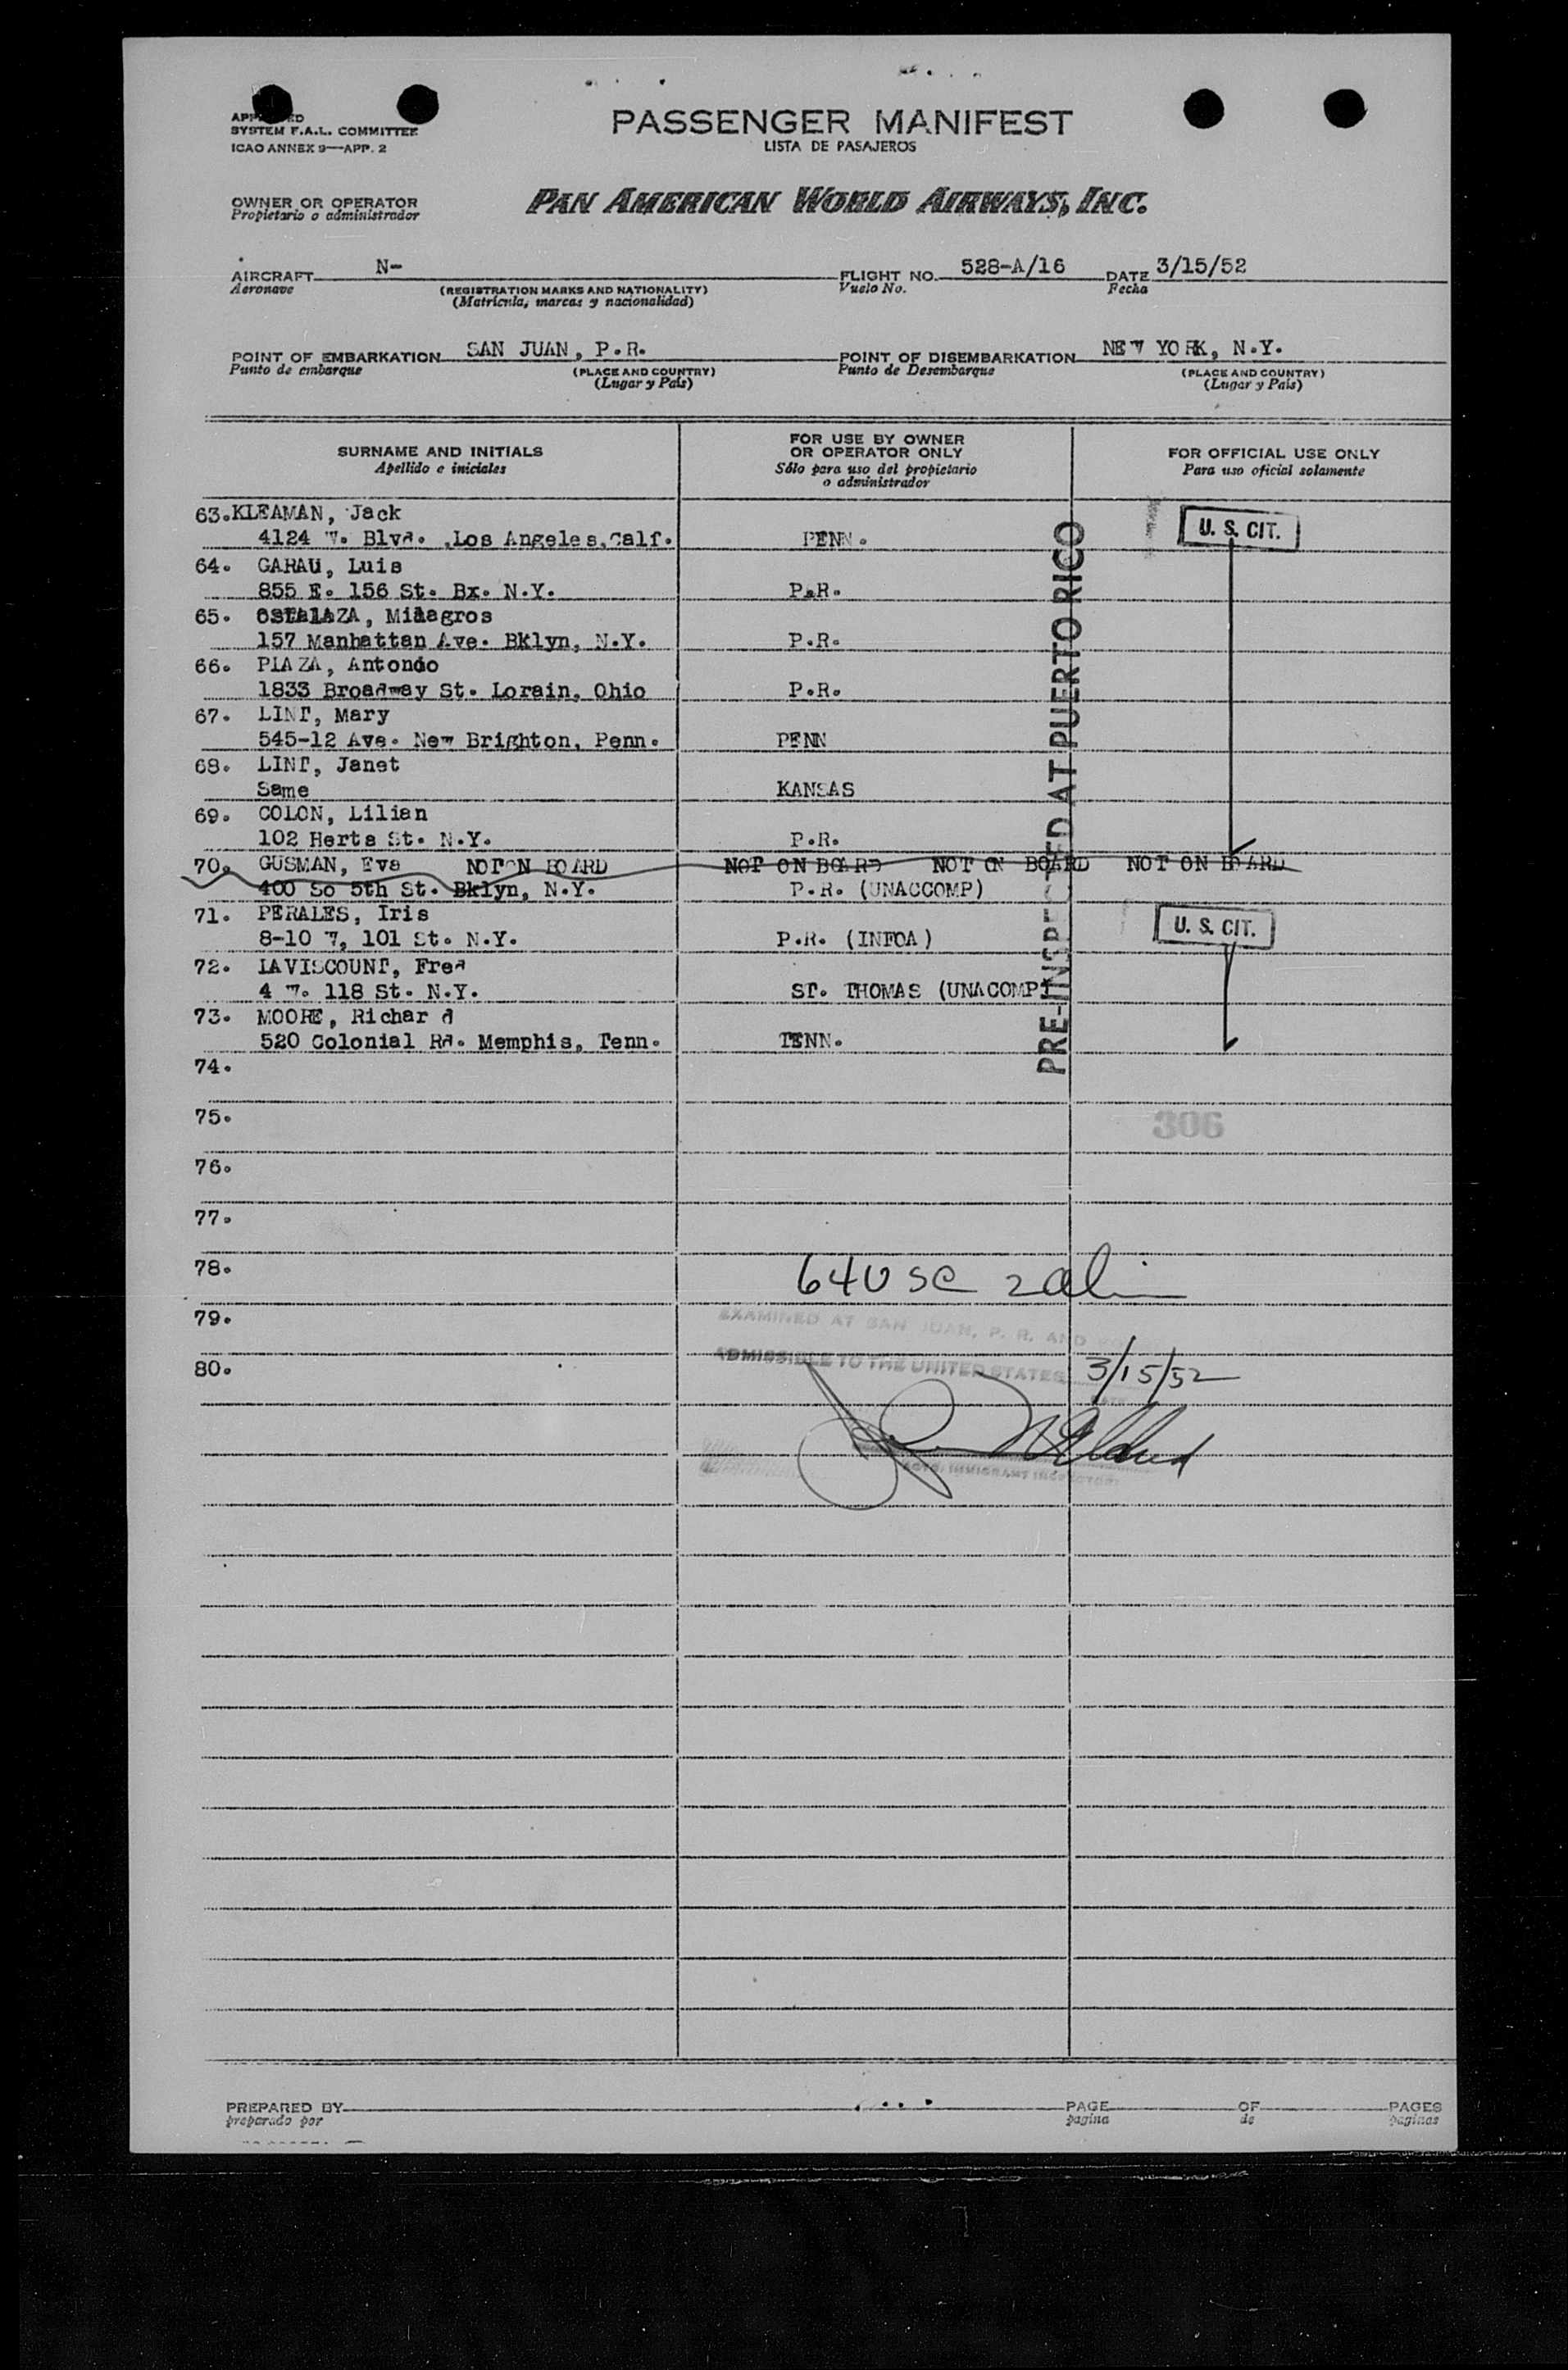 APPROVED
SYSTEM F.A.L. COMMITTEE
ICAO ANNEX 9—APP. 2
PASSENGER MANIFEST
LISTA DE PASAJEROS
OWNER OR OPERATOR
Propietario o administrador
PAN AMERICAN WORLD AIRWAYS, INC.
AIRCRAFT N- FLIGHT NO. 528-A/16 DATE 3/15/52
Aeronave (REGISTRATION MARKS AND NATIONALITY) Vuelo No. Fecha
(Matrícula, marcas y nacionalidad)
POINT OF EMBARKATION SAN JUAN, P.R. POINT OF DISEMBARKATION NEW YORK, N.Y.
Punto de embarque (PLACE AND COUNTRY) Punto de Desembarque (PLACE AND COUNTRY)
(Lugar y País) (Lugar y País)
SURNAME AND INITIALS
Apellido e iniciales
FOR USE BY OWNER
OR OPERATOR ONLY
Sólo para uso del propietario
o administrador
FOR OFFICIAL USE ONLY
Para uso oficial solamente
63. KLEAMAN, Jack
4124 W. Blvd. ,Los Angeles,Calf. PENN. U. S. CIT.
64. GARAU, Luis
855 E. 156 St. Bx. N.Y. P.R.
65. OSTALAZA, Milagros
157 Manhattan Ave. BKlyn, N.Y. P.R.
66. PLAZA, Antonio
1833 Broadway St. Lorain, Ohio P.R.
67. LINT, Mary
545-12 Ave. New Brighton, Penn. PENN
68. LINT, Janet
Same KANSAS
69. COLON, Lilian
102 Herts St. N.Y. P.R.
70. GUSMAN, Eva NOT ON BOARD NOT ON BOARD NOT ON BOARD NOT ON BOARD
400 So 5th St. Bklyn, N.Y. P.R. (UNACCOMP)
71. PERALES, Iris
8-10 W, 101 St. N.Y. P.R. (INFOA) U. S. CIT.
72. LAVISCOUNT, Fred
4 W. 118 St. N.Y. ST. THOMAS (UNACOMP)
73. MOORE, Richard
520 Colonial Rd. Memphis, Tenn. TENN.
PRE-INSPECTED AT PUERTO RICO
74.
75.
306
76.
77.
78.
64 USC 2 ali
79.
EXAMINED AT SAN JUAN, P. R. AND
80.
ADMISSIBLE TO THE UNITED STATES 3/15/52
DATE
ACTG. IMMIGRANT INSPECTOR
PREPARED BY PAGE OF PAGES
preparado por pagina de paginas